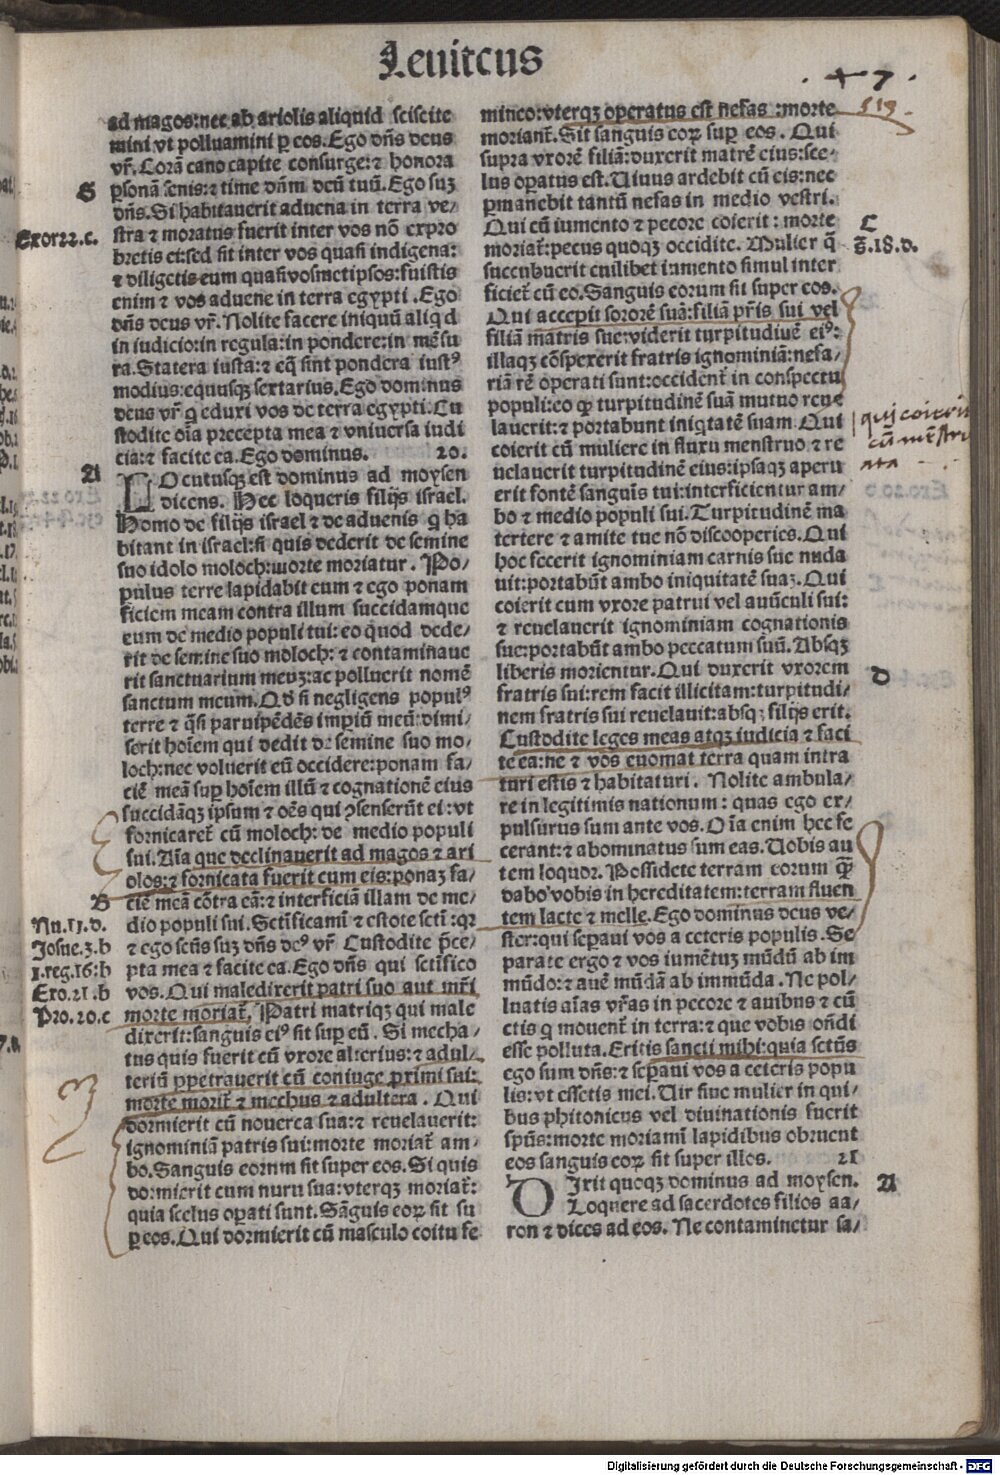 Leuitcus
. + 7 .
119.
ad magos:nec ab ariolis aliquid sciscite
mini vt polluamini ꝑ eos. Ego dñs deus
vr̃. Corã cano capite consurge:⁊ honora
S
ꝑsonã senis:⁊ time dñm deũ tuũ. Ego suʒ
dñs. Si habitauerit aduena in terra ve/
Exor22.c.
stra ⁊ moratus fuerit inter vos nõ expro
bretis ei:sed sit inter vos quasi indigena:
⁊ diligetis eum quasi vosmetipsos:fuistis
enim ⁊ vos aduene in terra egypti . Ego
dñs deus vr̃. Nolite facere iniquũ aliq̇d
in iudicio:in regula:in pondere:in mẽsu
ra. Statera iusta:⁊ eq̃ sint pondera iustꝰ
modius:equusqʒ sextarius. Ego dominus
deus vr̃ q̇ eduxi vos de terra egypti. Cu
stodite oĩa precepta mea ⁊ vniuersa iudi
cia:⁊ facite ea. Ego dominus. 20.
A
LOcutusqʒ est dominus ad moysen
dicens. Hec loqueris filijs israel.
Homo de filijs israel ⁊ de aduenis q̇ ha
bitant in israel:si quis dederit de semine
suo idolo moloch:morte moriatur . Po/
pulus terre lapidabit eum ⁊ ego ponam
ficiem meam contra illum succidamque
eum de medio populi tui: eo q̃uod dede/
rit de semine suo moloch: ⁊ contaminaue
rit sanctuarium meuʒ:ac polluerit nomẽ
sanctum meum. Qđ si negligens populꝰ
terre ⁊ q̃si paruipẽdẽs impiũ meũ:dimi/
serit hoĩem qui dedit de semine suo mo/
loch:nec voluerit eũ occidere:ponam fa/
ciẽ meã suꝑ hoĩem illũ ⁊ cognationẽ eius
succidãqʒ ipsum ⁊ oẽs qui ꝯsenserũt ei:vt
fornicaret̃ cũ moloch: de medio populi
sui. Aĩa que declinauerit ad magos ⁊ ari
olos:⁊ fornicata fuerit cum eis:ponaʒ fa/
B
ciẽ meã cõtra eã:⁊ interficiã illam de me/
Nu.11.d.
dio populi sui. Sctĩficamĩ ⁊ estote sctĩ:qꝛ
Josue.3.b
⁊ ego sctũs suʒ dñs deꝰ vr̃ Custodite p̃ce/
1.reg.16:b
pta mea ⁊ facite ea. Ego dñs qui sctĩfico
Exo.21.b
vos. Qui maledixerit patri suo aut mr̃i
Pro.20.c
morte moriat̃. Patri matriqʒ qui male
dixerit:sanguis eiꝰ sit suꝑ eũ . Si mecha/
tus quis fuerit cũ vxore alterius:⁊ adul/
teriũ ꝑpetrauerit cũ coniuge proximi sui:
morte morit̃ ⁊ mechus ⁊ adultera . Qui
dormierit cũ nouerca sua:⁊ reuelauerit:
ignominiã patris sui:morte moriat̃ am/
bo. Sanguis eorum sit super eos. Si quis
dormierit cum nuru sua:vterqʒ moriat̃:
quia scelus oꝑati sunt. Sãguis eoꝝ sit su
ꝑ eos. Qui dormierit cũ masculo coitu fe
mineo:vterqʒ operatus est nefas :morte
moriant̃. Sit sanguis eoꝝ suꝑ eos . Qui
supra vxorẽ filiã:duxerit matrẽ eius:sce/
lus oꝑatus est. Uiuus ardebit cũ eis:nec
ꝑmanebit tantũ nefas in medio vestri.
Qui cũ iumento ⁊ pecore coierit : morte
C
moriat̃:pecus quoqʒ occidite. Mulier q̃
g̃.18.d.
succubuerit cuilibet iumento simul inter
ficiet̃ cũ eo. Sanguis eorum sit super eos.
Qui acceperit sororẽ suã:filiã pr̃is sui vel
filiã matris sue:viderit turpitudiuẽ eiꝰ:
illaqʒ cõspexerit fratris ignominiã:nefa/
riã rẽ operati sunt:occident̃ in conspectu
populi:eo ꝙ turpitudinẽ suã mutuo reue
quj coierit
cũ mẽstru
ata
lauerit:⁊ portabunt iniq̇tatẽ suam. Qui
coierit cũ muliere in fluxu menstruo ⁊ re
uelauerit turpitudinẽ eius:ipsaqʒ aperu
erit fontẽ sanguĩs sui:interficientur am/
bo ⁊ medio populi sui. Turpitudinẽ ma
tertere ⁊ amite tue nõ discooperies. Qui
hoc fecerit ignominiam carnis sue nuda
uit:portabũt ambo iniquitatẽ suaʒ. Qui
coierit cum vxore patrui vel auũculi sui:
⁊ reuelauerit ignominiam cognationis
sue:portabũt ambo peccatum suũ. Absqʒ
liberis morientur. Qui duxerit vxorem
D
fratris sui:rem facit illicitam:turpitudi/
nem fratris sui reuelauit:absqʒ filijs erit.
Custodite leges meas atqʒ iudicia ⁊ faci
te ea:ne ⁊ vos euomat terra quam intra
turi estis ⁊ habitaturi . Nolite ambula/
re in legitimis nationum : quas ego ex/
pulsurus sum ante vos. Oĩa enim hec fe
cerant:⁊ abominatus sum eas. Uobis au
tem loquor. Possidete terram eorum q̃
dabo vobis in hereditatem:terram fluen
tem lacte ⁊ melle. Ego dominus deus ve/
ster:qui seꝑaui vos a ceteris populis. Se
parate ergo ⁊ vos iumẽtuʒ mũdũ ab im
mũdo:⁊ auẽ mũdã ab immũda. Ne pol/
luatis aĩas vr̃as in pecore ⁊ auibus ⁊ cũ
ctis q̇ mouent̃ in terra:⁊ que vobis oñdi
esse polluta. Eritis sancti mihi:quia sctũs
ego sum dñs:⁊ seꝑaui vos a ceteris popu
lis:vt essetis mei. Uir siue mulier in qui/
bus phitonicus vel diuinationis fuerit
spũs:morte moriamĩ lapidibus obruent
eos sanguis eoꝝ sit super illos. 21
DIxit quoqʒ dominus ad moysen.
A
Loquere ad sacerdotes filios aa/
ron ⁊ dices ad eos. Ne contaminetur sa/
Digitalisierung gefördert durch die Deutsche Forschungsgemeinschaft - DFG